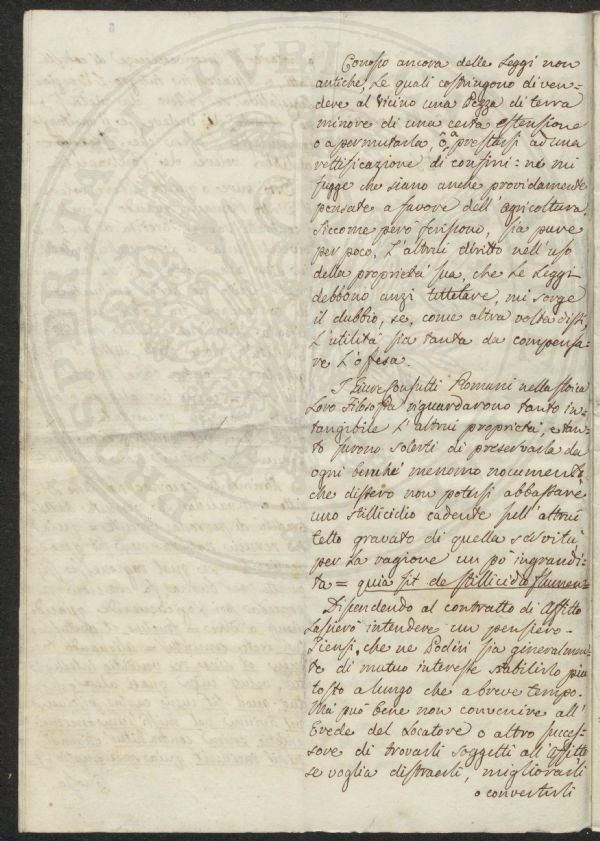 Conosco ancora delle Leggi non
antiche, Le quali costringono di ven=
dere al vicino una Pezza di terra
minore di una certa estensione
o a permutarla, ò a prestarsi ad una
rettificazione di confini: nè mi
fugge che siano anche providamente
pensate a favore dell'agricoltura.
Siccome però feriscono, sia pure
per poco, L'altrui diritto nell'uso
della proprietà sua, che Le Leggi
debbono anzi tuttelare, mi sorge
il dubbio, se, come altra volta dissi,
L'utilità sia tanta da compensa=
re L'offesa.
I Giureconsulti Romani nella stoica
Loro Filosofia riguardarono tanto in=
tangibile L'altrui proprietà, e tan=
to furono solerti di preservarla da
ogni benchè menomo nocumento
che dissero non potersi abbassare
uno stillicidio cadente sull'altrui
tetto gravato di quella servitù,
per La ragione un pò ingrandi=
ta = quia fit de stillicidio flumen=
Discendendo al contratto di Affitto
Lascierò intendere un pensiero.
Tiensi, che ne Poderi sia generalmen=
te di mutuo interesse stabilirlo piu
tosto a lungo che a breve tempo.
Ma può bene non convenire all'
Erede del Locatore o altro succes=
sore di trovarli soggetti all'affitto
se voglia distraerli, migliorarli
o convertirli